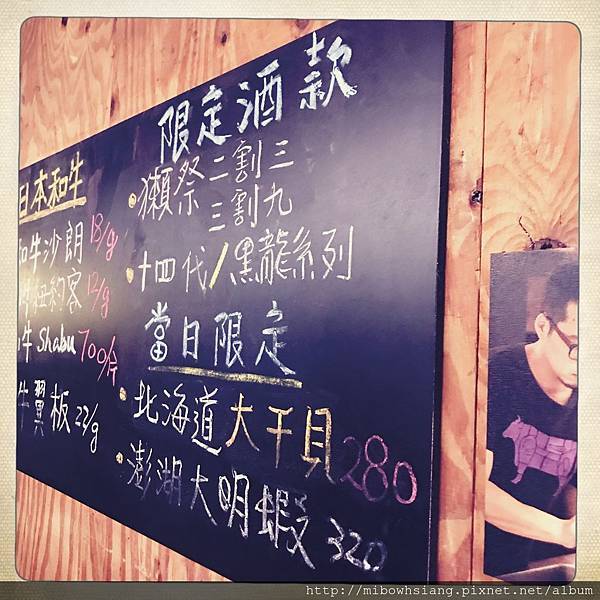 日本和牛
和牛沙朗 18/g
紐約客 12/g
牛 Shabu 700/份
牛翼板 22/g
限定酒款
獺祭 二割三
三割九
十四代/黑龍系列
當日限定
北海道大干貝 280
澎湖大明蝦 320
http://mibowhsiang.pixnet.net/album